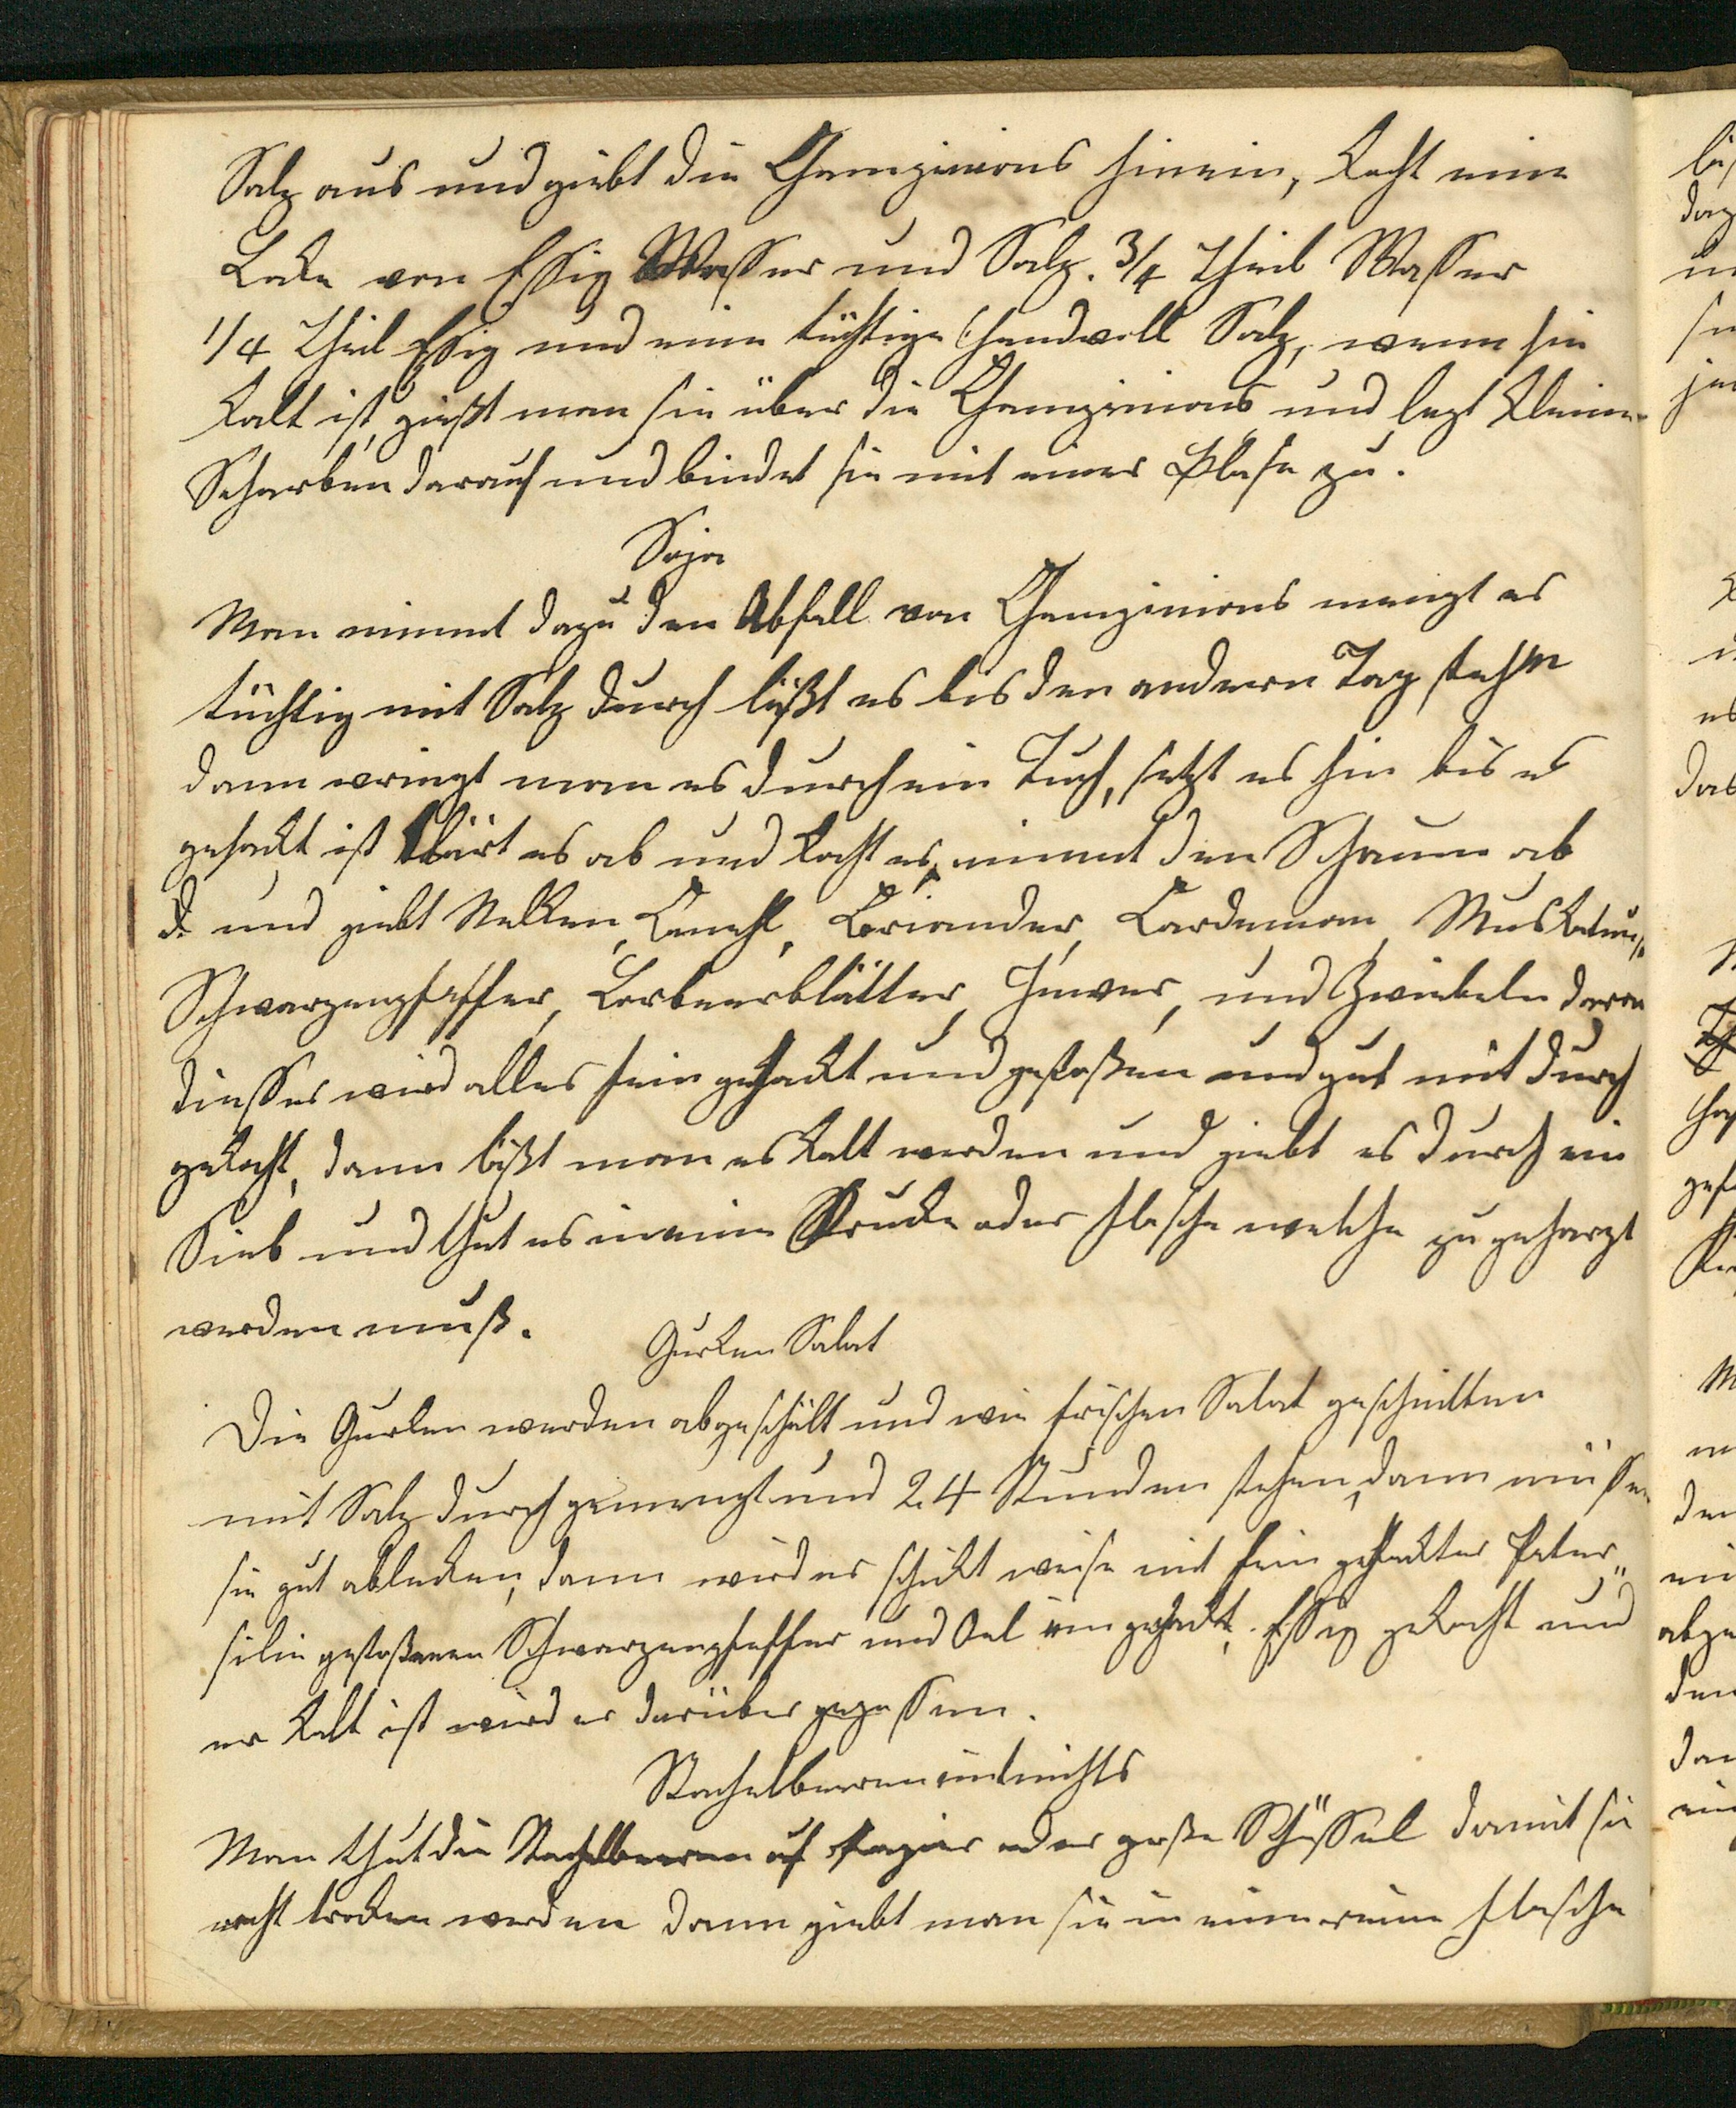 Salz aus und giebt die Champinions hinein, kocht eine
Lake von Essig Wasser und Salz. 3/4 Theil Wasser
1/4 Theil Essig und eine tüchtige Handvoll Salz, wenn sie
kalt ist, gießt man sie über die Champinions und legt kleine
Scharben darauf und bindet sie mit einer Blase zu.
Soja
Man nimmt dazu den Abfall von Champinions mengt es
tüchtig mit Salz durch läßt es bis den andern Tag stehn
dann wringt man es durch ein Tuch, setzt es hin bis es
gesackt ist klärt es ab und kocht es, nimmt den Schaum ab
und giebt Nelken, Canehl, Coriander, Cardemom Muskatnuß
Schwarzenpfeffer, Lorbeerblätter, Inver, und Zwiebeln daran
diesses wird alles fein gehackt und gestoßen und gut mit durch
gekocht, dann läßt man es kalt werden und giebt es durch ein
Sieb und thut es in eine Krucke oder Flasche welche zu geharzt
werden muß.
Gurken Salat
Die Gurken werden abgeschält und wie frischen Salat geschnitten
mit Salz durch gemengt und 24 Stunden stehen, dann müssen
sie gut ablecken, dann wird er schicht weise mit fein gehackter Peter„
silie gestoßenen Schwarzenpfeffer und Oel ein gepackt. Essig gekocht und
er kalt ist wird er darüber gegossen.
Stachelbeeren
Man thut die Stachelbeeren auf Papier oder große Schüssel damit sie
recht trocken werden dann giebt man sie in eine reine Flasche